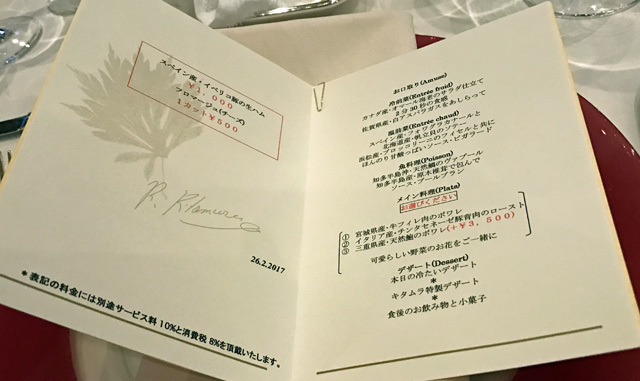 スペイン産・イベリコ豚の生ハム
¥1,000
フロマージュ(チーズ)
1カット¥500
26.2.2017
＊表記の料金には別途サービス料10%と消費税8%を頂戴いたします。
お口取り(Amuse)
冷前菜(Entrée froid)
カナダ産・オマール海老のサラダ仕立て
2分30秒の食感
佐賀県産・白アスパラガスをあしらって
温前菜(Entrée chaud)
スペイン産・フォワグラカナールと
北海道産・帆立貝のソテー
浜松産・ブロッコリーニのフィセルと共に
ほんのり甘酸っぱいソース・ビガラード
魚料理(Poisson)
知多半島沖・天然鯛のヴァプール
知多半島産・原木椎茸で包んで
ソース・ブールブラン
メイン料理(Plats)
お選びください
① 宮城県産・牛フィレ肉のポワレ
② イタリア産・チンタセネーゼ豚背肉のロースト
③ 三重県産・天然鮑のポワレ(+¥3,500)
可愛らしい野菜のお花をご一緒に
デザート(Dessert)
本日の冷たいデザート
＊
キタムラ特製デザート
＊
食後のお飲み物と小菓子